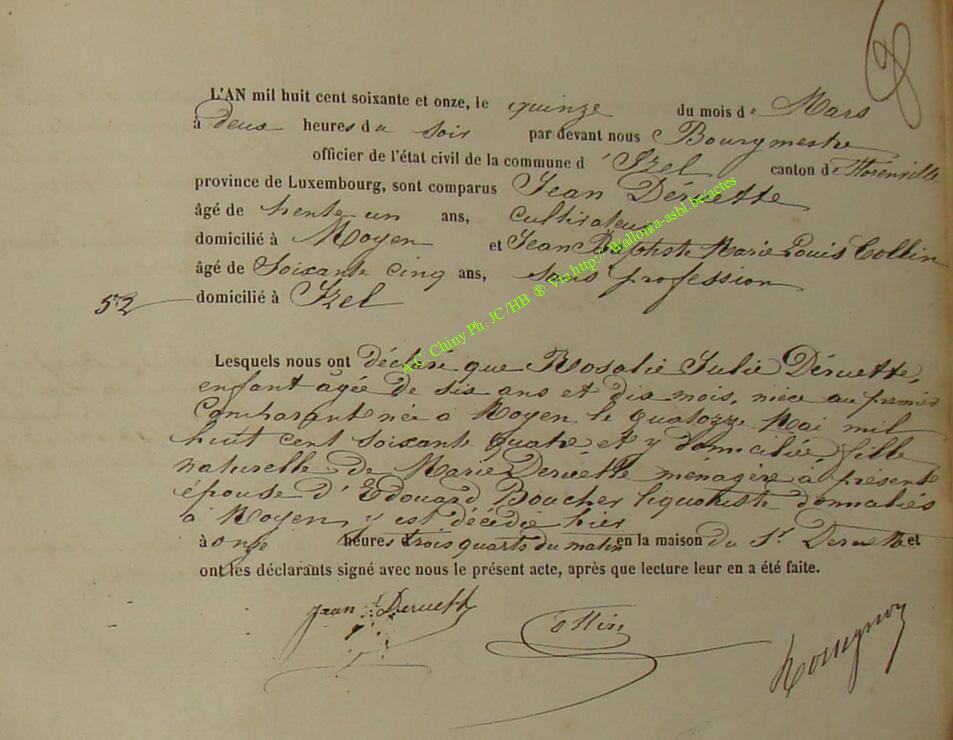 L'AN mil huit cent soixante et onze, le quinze du mois de Mars
à deux heures du soir par devant nous Bourgmestre
officier de l'état civil de la commune d'Izel canton de Florenville
province de Luxembourg, sont comparus Jean Déruette
âgé de trente un ans, cultivateur
domicilié à Moyen et Jean Baptiste Marie Louis Collin
âgé de Soixante cinq ans, sans profession
52 domicilié à Izel
Lesquels nous ont déclaré que Rosalie Julie Déruette,
enfant agée de six ans et dix mois, nièce au premier
comparant née à Moyen le quatorze Mai mil
huit cent soixante quatre et y domiciliée fille
naturelle de Marie Deruette menagère à présent
épouse d'Edouard Boucher liquoriste domiciliés
à Moyen, y est décédée hier
à onze heures trois quarts du matin en la maison du Sr. Deruette et
ont les déclarants signé avec nous le présent acte, après que lecture leur en a été faite.
Jean Deruette
Collin
A.G. Chiny Ph. JC/HB ® Via http://Wallonia-asbl.be/actes